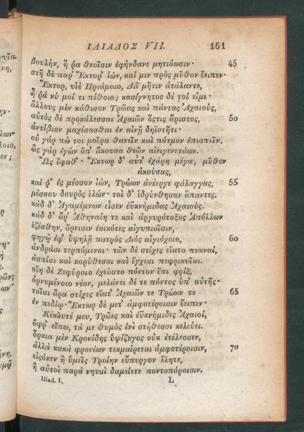 ΙΛΙΑΔΟΣ VII. 161
βουλήν, ἥ ῥα θεοῖσιν ἐφήνδανε μητιόωσιν· 45
στῆ δὲ παρ' Ἕκτορ' ἰὼν, καί μιν πρὸς μῦθον ἔειπεν·
Ἕκτορ, υἱὲ Πριάμοιο, Διῒ μῆτιν ἀτάλαντε,
ἦ ῥά νύ μοί τι πίθοιο; κασίγνητος δέ τοί εἰμι·
ἄλλους μὲν κάθισον Τρῶας καὶ πάντας Ἀχαιούς,
αὐτὸς δὲ προκάλεσσαι Ἀχαιῶν ὅςτις ἄριστος, 50
ἀντίβιον μαχέσασθαι ἐν αἰνῇ δηϊοτῆτι·
οὐ γάρ πώ τοι μοῖρα θανεῖν καὶ πότμον ἐπισπεῖν.
ὣς γὰρ ἐγὼν ὄπ' ἄκουσα θεῶν αἰειγενετάων.
Ὣς ἔφαθ'· Ἕκτωρ δ' αὖτ' ἐχάρη μέγα, μῦθον
ἀκούσας,
καί ῥ' ἐς μέσσον ἰὼν, Τρώων ἀνέεργε φάλαγγας, 55
μέσσου δουρὸς ἑλών· τοὶ δ' ἱδρύνθησαν ἅπαντες.
κὰδ δ' Ἀγαμέμνων εἷσεν ἐϋκνήμιδας Ἀχαιούς.
κὰδ δ' ἄρ' Ἀθηναίη τε καὶ ἀργυρότοξος Ἀπόλλων
ἑζέσθην, ὄρνισιν ἐοικότες αἰγυπιοῖσιν,
φηγῷ ἐφ' ὑψηλῇ πατρὸς Διὸς αἰγιόχοιο, 60
ἀνδράσι τερπόμενοι· τῶν δὲ στίχες εἵατο πυκναί,
ἀσπίσι καὶ κορύθεσσι καὶ ἔγχεσι πεφρικυῖαι.
οἵη δὲ Ζεφύροιο ἐχεύατο πόντον ἔπι φρὶξ,
ὀρνυμένοιο νέον, μελάνει δέ τε πόντος ὑπ' αὐτῆς·
τοῖαι ἄρα στίχες εἵατ' Ἀχαιῶν τε Τρώων τε 65
ἐν πεδίῳ· Ἕκτωρ δὲ μετ' ἀμφοτέροισιν ἔειπεν·
Κέκλυτέ μευ, Τρῶες καὶ ἐϋκνήμιδες Ἀχαιοί,
ὄφρ' εἴπω, τά με θυμὸς ἐνὶ στήθεσσι κελεύει.
ὅρκια μὲν Κρονίδης ὑψίζυγος οὐκ ἐτέλεσσεν,
ἀλλὰ κακὰ φρονέων τεκμαίρεται ἀμφοτέροισιν, 70
εἰςόκεν ἢ ὑμεῖς Τροίην εὔπυργον ἕλητε,
ἢ αὐτοὶ παρὰ νηυσὶ δαμείετε ποντοπόροισιν.
Iliad. I. L